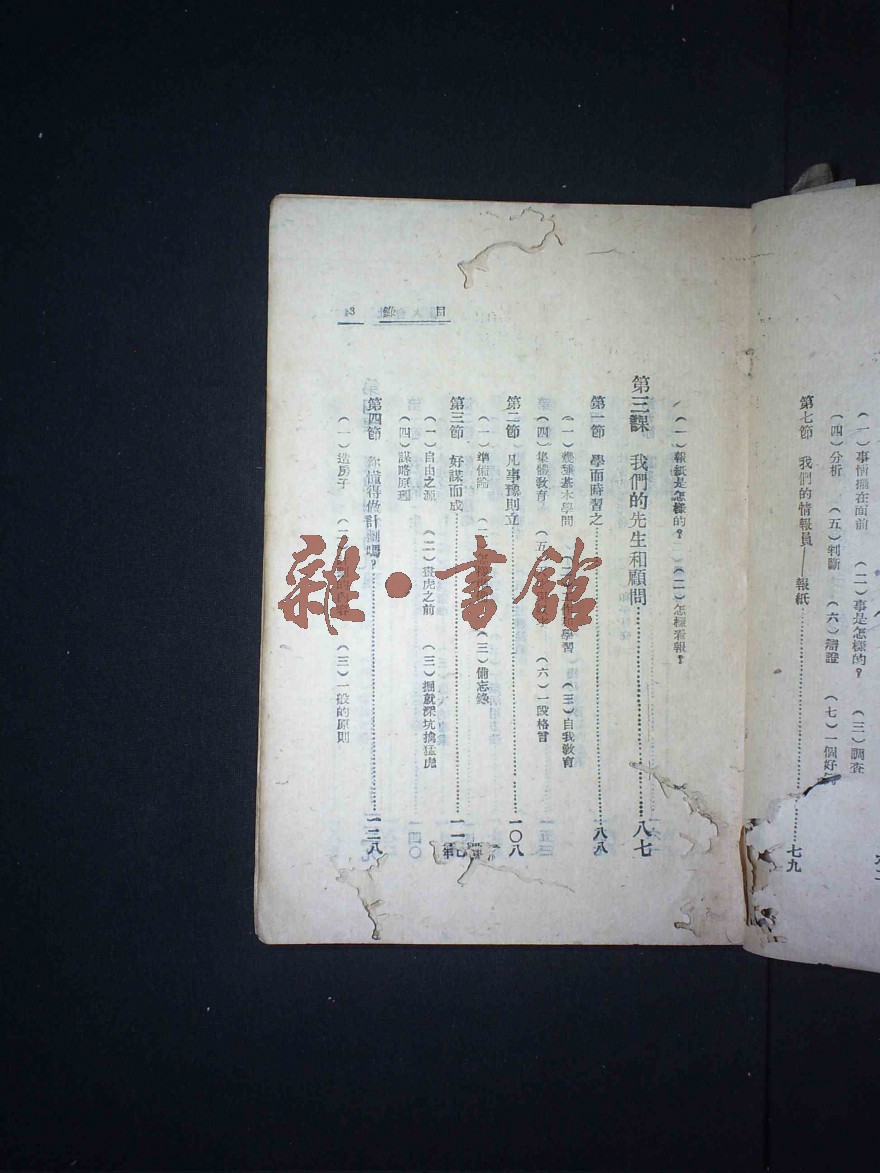 (一)事情擺在面前 (二)事是怎樣的? (三)調查
(四)分析 (五)判斷 (六)辯證 (七)一個好
第七節 我們的情報員——報紙 七九
目錄 3
(一)報紙是怎樣的? (二)怎樣看報?
第三課 我們的先生和顧問 八七
第一節 學而時習之 八八
(一)幾種基本學問 學習 (三)自我教育
(四)集體教育 (五) (六)一段格言
第二節 凡事豫則立 一〇八
(一)準備論 (三)備忘錄
第三節 好謀而成 一一七
(一)自由之源 (二)畫虎之前 (三)掘就深坑擒猛虎
(四)謀略原理
第四節 你懂得做計劃嗎? 一二八
(一)造房子 (三)一般的原則
雜·書館